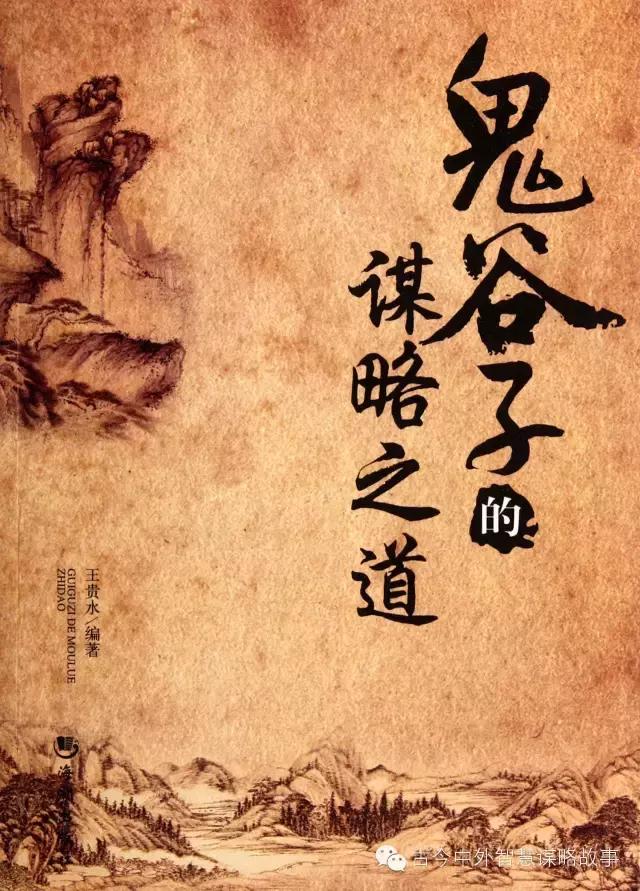 鬼谷子的
谋略之道
王贵水/编著
GUIGUZI DE MOULUE
ZHIDAO
古今中外智慧谋略故事